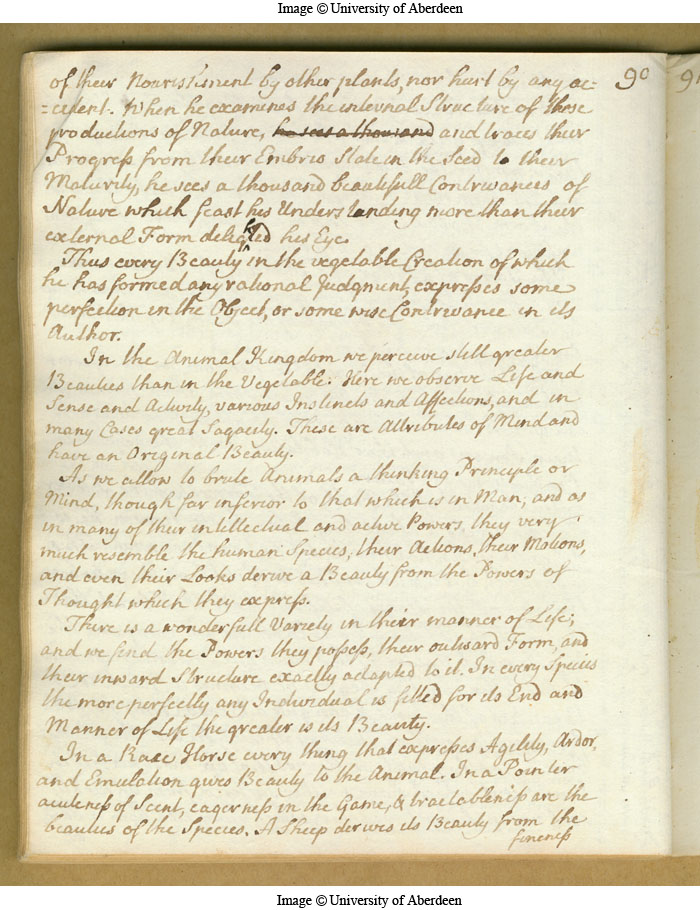 Image © University of Aberdeen
90
of their Nourishment by other plants, nor hurt by any ac:
:cident. When he examines the internal Structure of these
productions of Nature, he sees a thousand and traces their
Progress from their Embrio State in the Seed to their
Maturity, he sees a thousand beautifull Contrivances of
Nature which feast his Understanding more than their
external Form delighted his Eye.
Thus every Beauty in the vegetable Creation of which
he has formed any rational Judgment, expresses some
perfection in the Object, or some wise Contrivance in its
Author.
In the Animal Kingdom we perceive still greater
Beauties than in the Vegetable. Here we observe Life and
Sense and Activity, various Instincts and Affections, and in
many Cases great Sagacity. These are Attributes of Mind and
have an Original Beauty.
As we allow to brute Animals a thinking Principle or
Mind, though far inferior to that which is in Man, and as
in many of their intellectual and active Powers they very
much resemble the human Species, their Actions, their Motions,
and even their Looks derive a Beauty from the Powers of
Thought which they express.
There is a wonderfull Variety in their manner of Life;
and we find the Powers they possess, their outward Form, and
their inward Structure exactly adapted to it. In every Species
the more perfectly any Individual is fitted for its End and
Manner of Life the greater is its Beauty.
In a Race Horse every thing that expresses Agility, Ardor,
and Emulation gives Beauty to the Animal. In a Pointer
acuteness of Scent, eagerness in the Game, & tractableness are the
beauties of the Species. A Sheep derives its Beauty from the
fineness
Image © University of Aberdeen